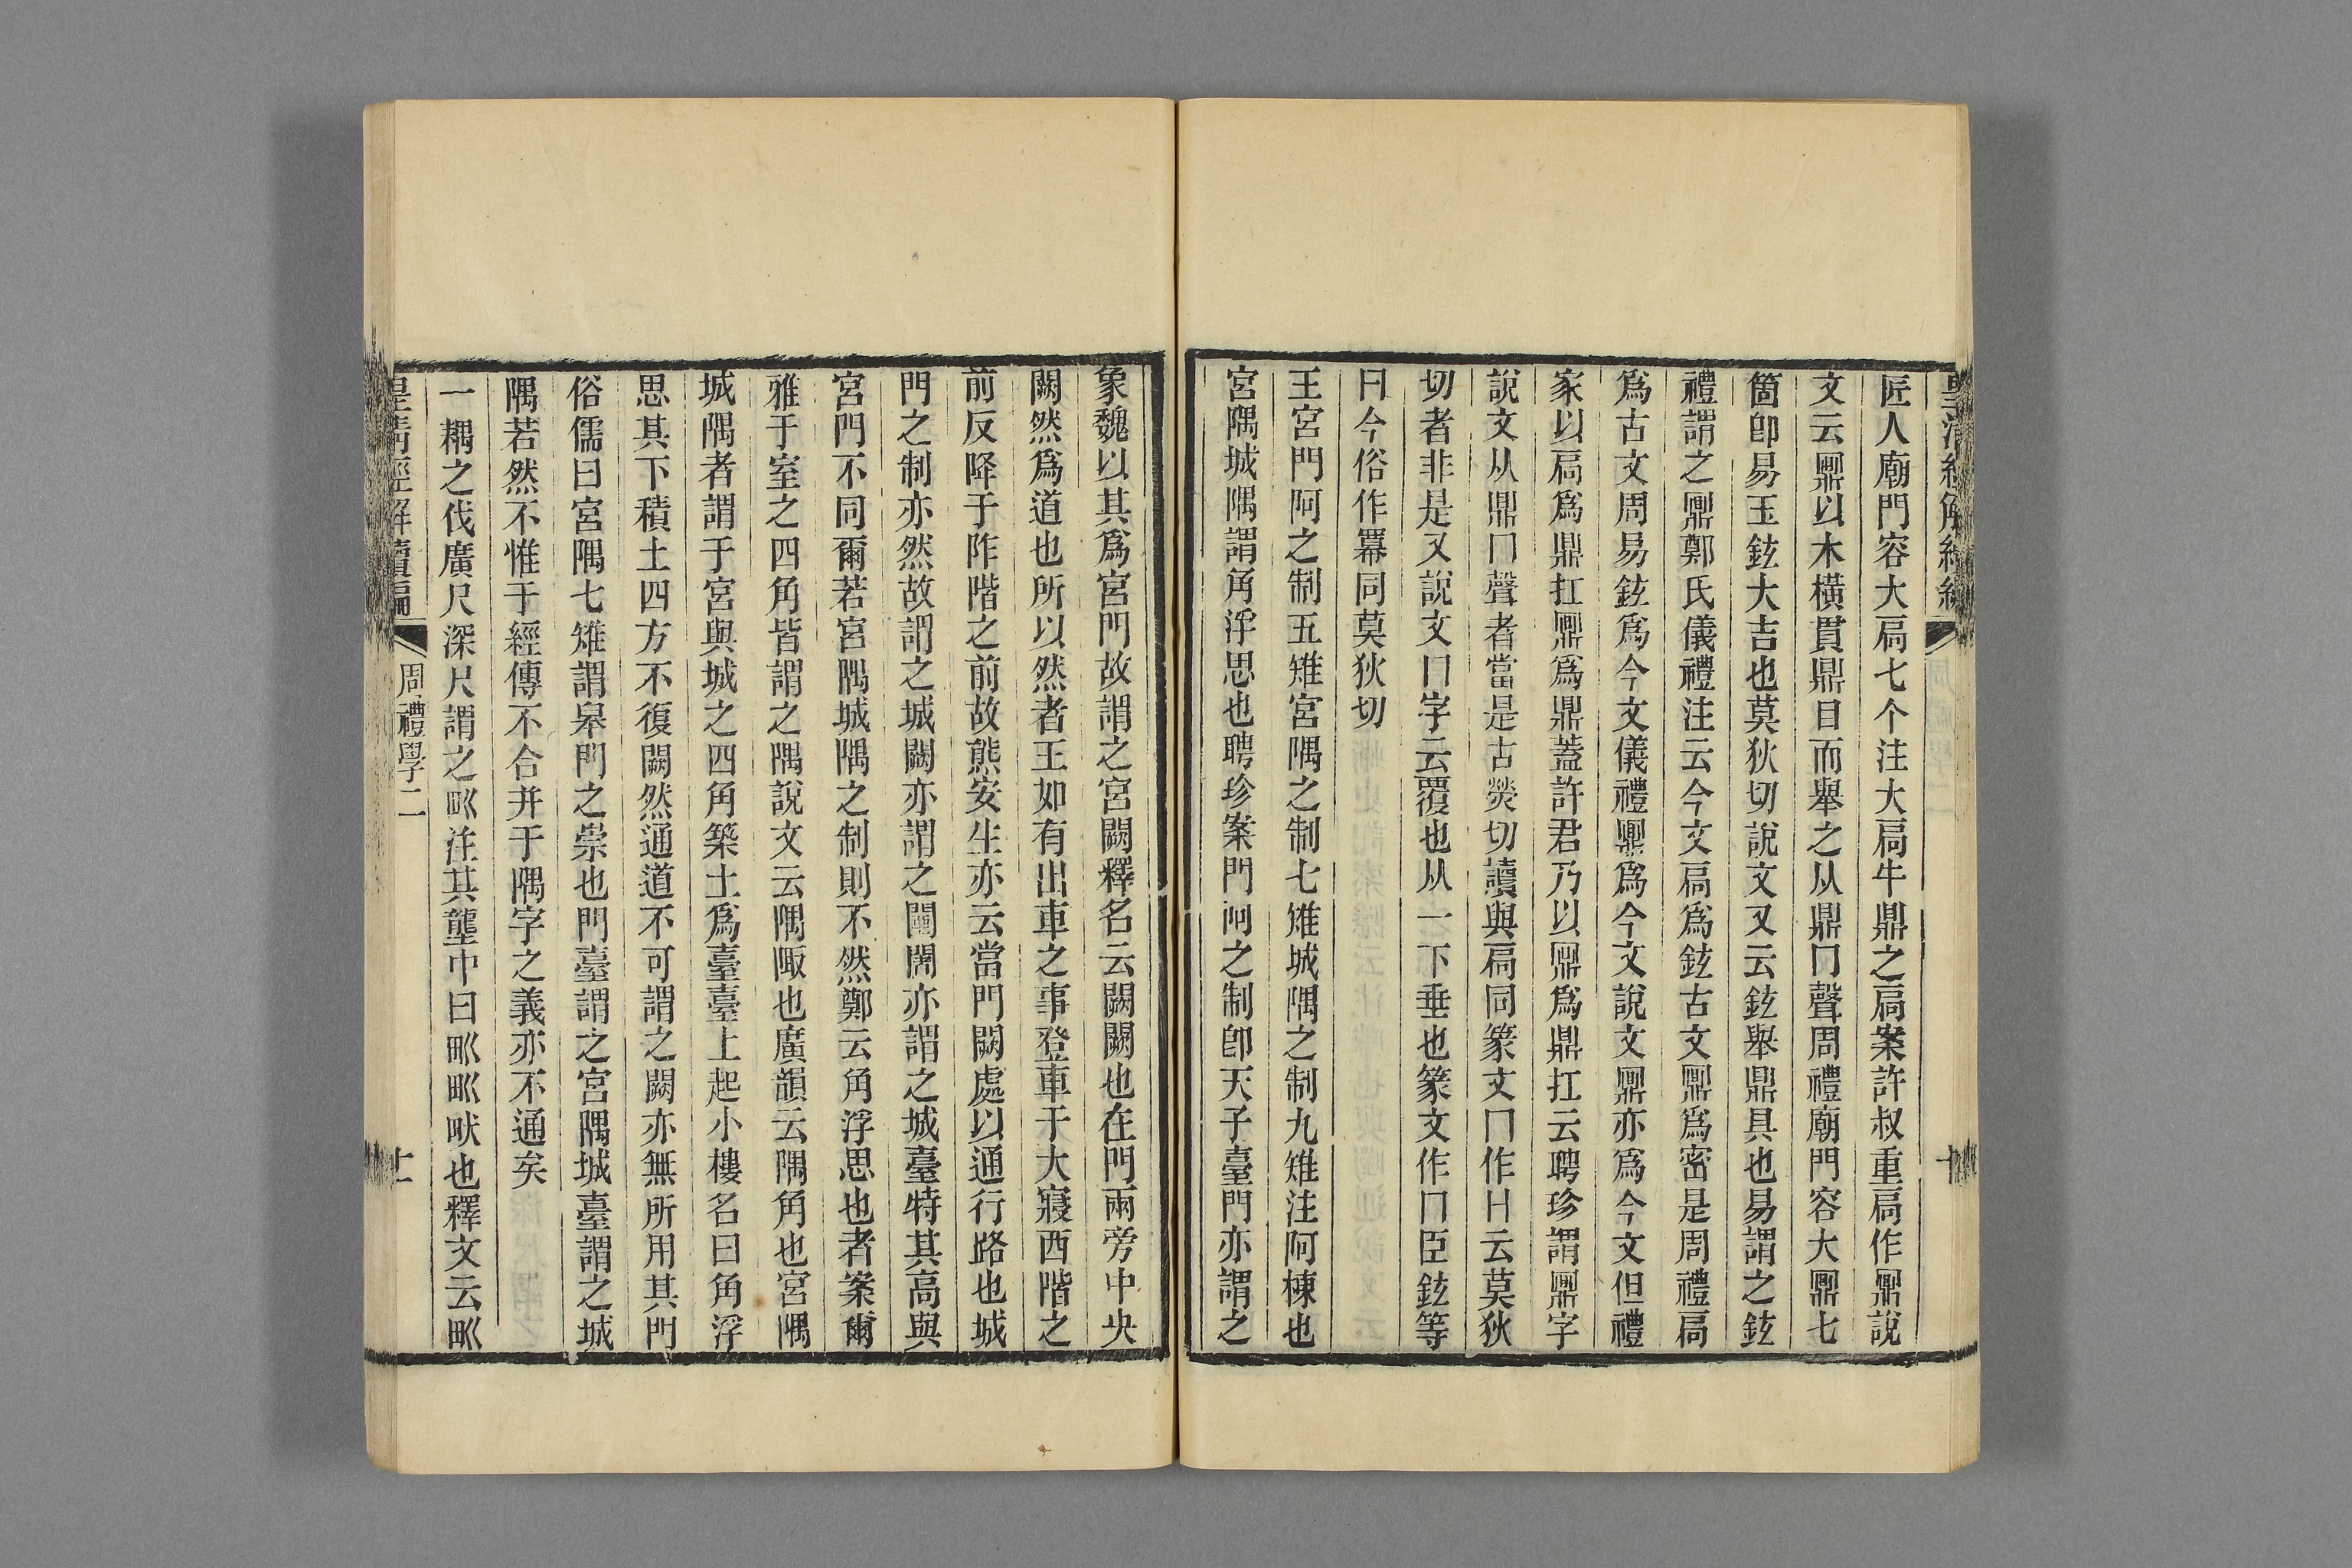 匠人廟門容大扃七个注大扃牛鼎之扃案許叔重扃作鼏說
文云鼏以木橫貫鼎耳而舉之从鼎冂聲周禮廟門容大鼏七
箇卽易玉鉉大吉也莫狄切說文又云鉉舉鼎具也易謂之鉉
禮謂之鼏鄭氏儀禮注云今文扃爲鉉古文鼏爲密是周禮扃
爲古文周易鉉爲今文儀禮鼏爲今文說文鼏亦爲今文但禮
家以扃爲鼎扛鼏爲鼎蓋許君乃以鼏爲鼎扛云聘珍謂鼏字
說文从鼎冂聲者當是古熒切讀與扃同篆文冂作H云莫狄
切者非是又說文冂字云覆也从一下垂也篆文作冂臣鉉等
曰今俗作羃同莫狄切
王宮門阿之制五雉宮隅之制七雉城隅之制九雉注阿棟也
宮隅城隅謂角浮思也聘珍案門阿之制卽天子臺門亦謂之
象魏以其爲宮門故謂之宮闕釋名云闕闕也在門兩旁中央
闕然爲道也所以然者王如有出車之事登車于大寢西階之
前反降于阼階之前故熊安生亦云當門闕處以通行路也城
門之制亦然故謂之城闕亦謂之闉闍亦謂之城臺特其高與
宮門不同爾若宮隅城隅之制則不然鄭云角浮思也者案爾
雅于室之四角皆謂之隅說文云隅陬也廣韻云隅角也宮隅
城隅者謂于宮與城之四角築土爲臺臺上起小樓名曰角浮
思其下積土四方不復闕然通道不可謂之闕亦無所用其門
俗儒曰宮隅七雉謂皋門之崇也門臺謂之宮隅城臺謂之城
隅若然不惟于經傳不合并于隅字之義亦不通矣
一耦之伐廣尺深尺謂之㽙注其壟中曰㽙㽙畎也釋文云㽙
皇淸經解續編
周禮學二
十一